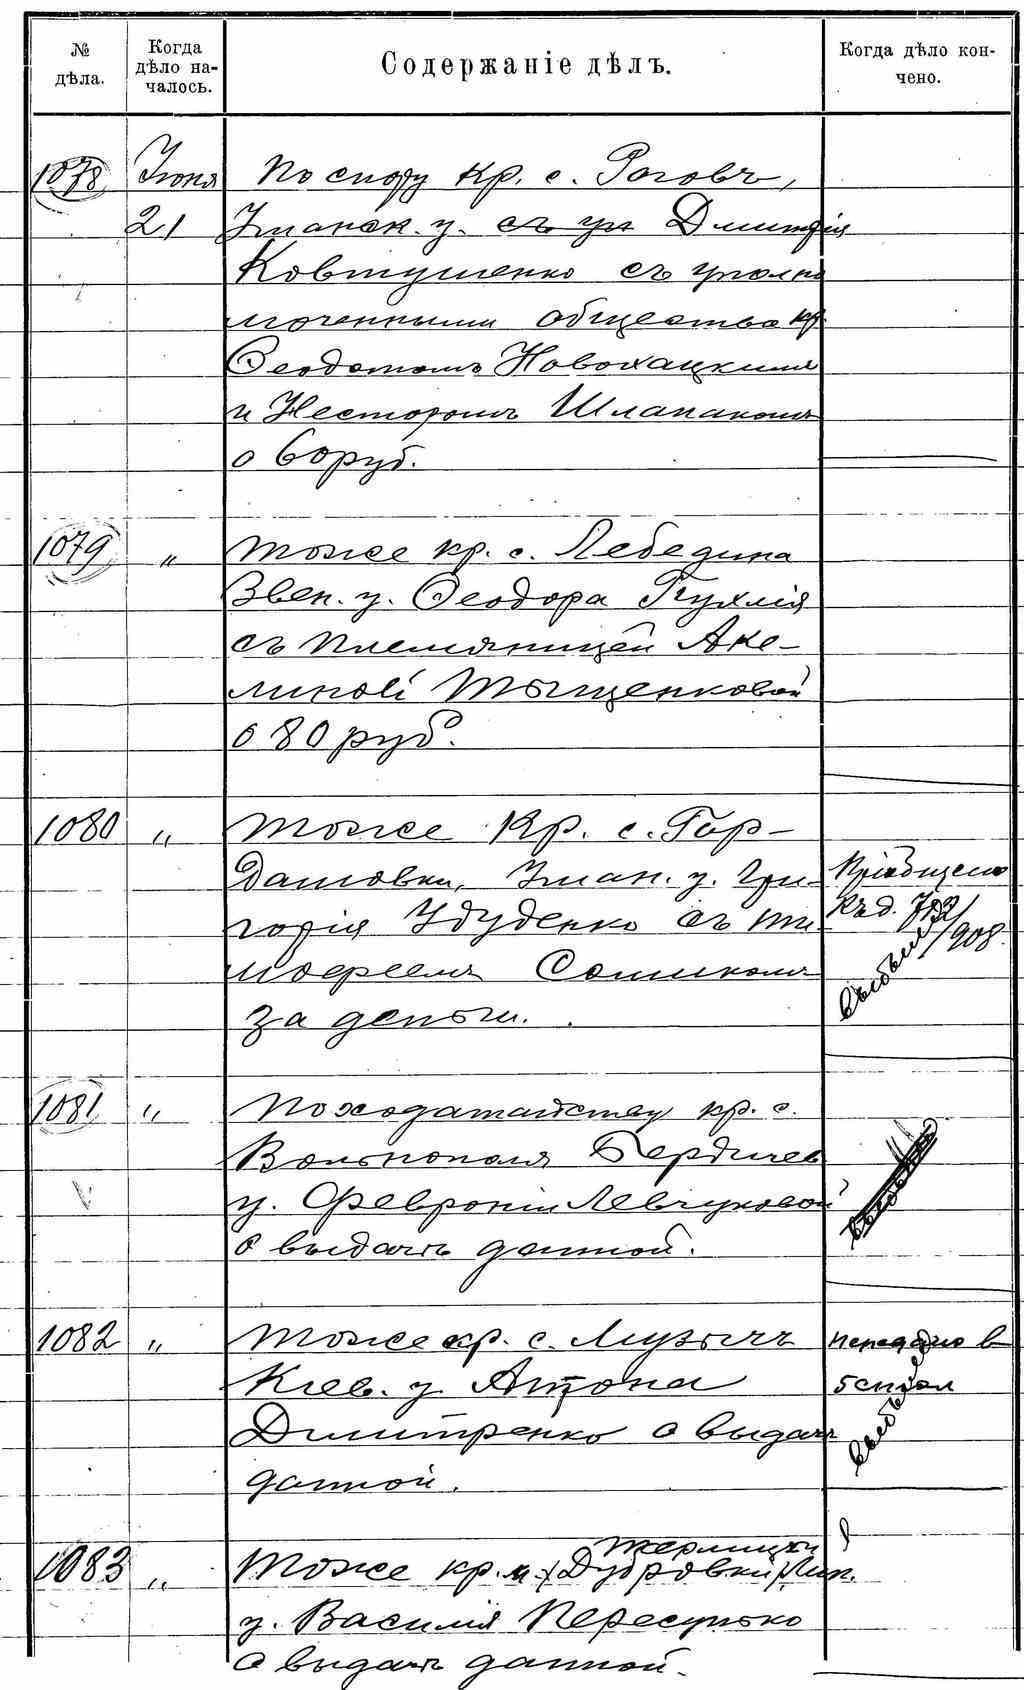 № дѣла.
Когда дѣло началось.
Содержаніе дѣлъ.
Когда дѣло кончено.
1078 Іюня По спору кр. с. Роговъ,
21 Уманск. у. съ уп Дмитрія
Ковтушенко съ уполно
моченными общества кр.
Ѳеодотомъ Новохацкимъ
и Несторомъ Шлапакомъ
о 60 руб.
1079 " Тоже кр. с. Лебедина
Звен. у. Ѳеодора Пухлія
съ племянницей Аке-
линой Тыщенковой
о 80 руб.
1080 " Тоже кр. с. Гор-
дашовки, Уман. у. Гри-
горія Удуденко съ Ти-
мофеемъ Сошкомъ
за деньги.
Пріобщено
къ д.
/908
1081 " По ходатайству кр. с.
Вольнополя Бердичев
у. Февроніи Левчуковой
о выдачѣ данной.
1082 " Тоже кр. с. Музычъ
Кіев. у. Антона
Дмитренко о выдачѣ
данной.
передано в
5 стол
Жерлицки
1083 " Тоже кр. м. (Дубровки) Лип.
у. Василія Пересунько
о выдачѣ данной.